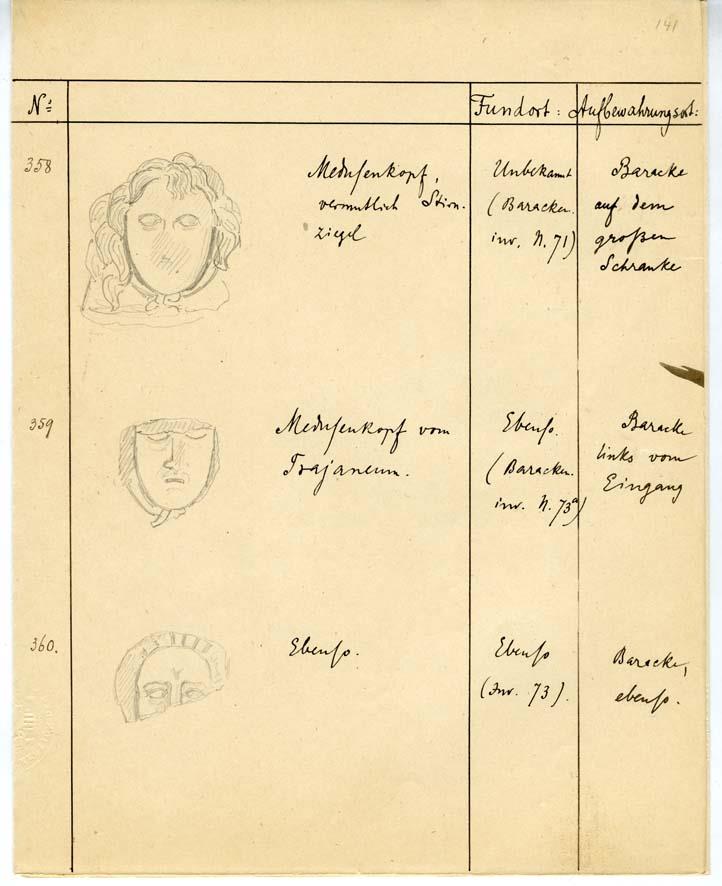 141
Nº: Fundort: Aufbewahrungsort:
358
Medusenkopf,
vermutlich Stirn-
ziegel
Unbekannt
(Baracken.
inv. N. 71)
Baracke
auf dem
großen
Schranke
359
Medusenkopf vom
Trajaneum.
Ebenso.
(Baracken.
inv. N. 73a)
Baracke
links vom
Eingang
360.
Ebenso.
Ebenso
(Inv. 73).
Baracke,
ebenso.